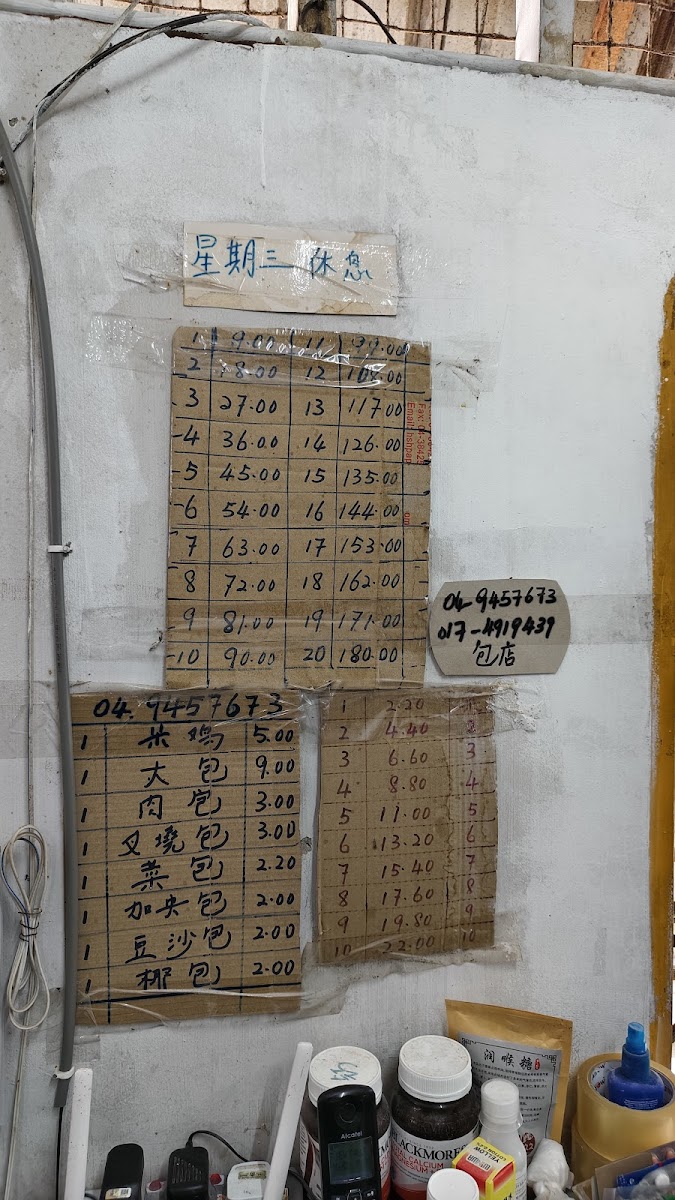 星期三 休息
1 9.00 11 99.00
2 18.00 12 108.00
3 27.00 13 117.00
4 36.00 14 126.00
5 45.00 15 135.00
6 54.00 16 144.00
7 63.00 17 153.00
8 72.00 18 162.00
9 81.00 19 171.00
10 90.00 20 180.00
04-9457673
017-4919439
包店
04.9457673
1 米鸡 5.00
1 大包 9.00
1 肉包 3.00
1 叉燒包 3.00
1 菜包 2.20
1 加央包 2.00
1 豆沙包 2.00
1 椰包 2.00
1 2.20 1
2 4.40 2
3 6.60 3
4 8.80 4
5 11.00 5
6 13.20 6
7 15.40 7
8 17.60 8
9 19.80 9
10 22.00 10
润喉糖
Alcatel
BLACKMORES
TOTAL CALCIUM
MAGNESIUM
YELLOW
LOTION